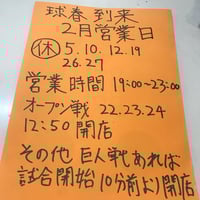 球春到来
2月営業日
㊡ 5.10.12.19
26.27
営業時間 19:00〜23:00
オープン戦 22.23.24
12:50 開店
その他 巨人戦あれば
試合開始 10分前より開店